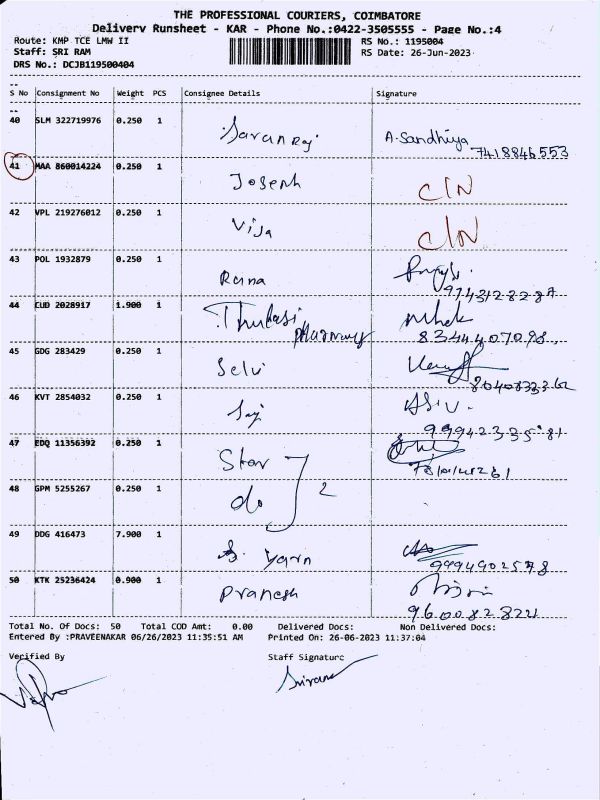 THE PROFESSIONAL COURIERS, COIMBATORE
Delivery Runsheet - KAR - Phone No.:0422-3505555 - Page No.:4
Route: KMP TCE LMW II RS No.: 1195004
Staff: SRI RAM RS Date: 26-Jun-2023
DRS No.: DCJB119500404
S No Consignment No Weight PCS Consignee Details Signature
40 SLM 322719976 0.250 1 Saranraj A. Sandhiya
7418846553
41 MAA 860014224 0.250 1 Joseph C/N
42 VPL 219276012 0.250 1 Vija C/N
43 POL 1932879 0.250 1 Rama
44 CUD 2028917 1.900 1 Thulasi pharmacy
8344407098
45 GDG 283429 0.250 1 Selvi
46 KVT 2854032 0.250 1
9994233581
47 EDQ 11356392 0.250 1 Star
48 GPM 5255267 0.250 1 do 2
49 DDG 416473 7.900 1 S. Yarn
9994902578
50 KTK 25236424 0.900 1 Pranesh
9600828224
Total No. Of Docs: 50 Total COD Amt: 0.00 Delivered Docs: Non Delivered Docs:
Entered By :PRAVEENAKAR 06/26/2023 11:35:51 AM Printed On: 26-06-2023 11:37:04
Verified By Staff Signature
Sriram